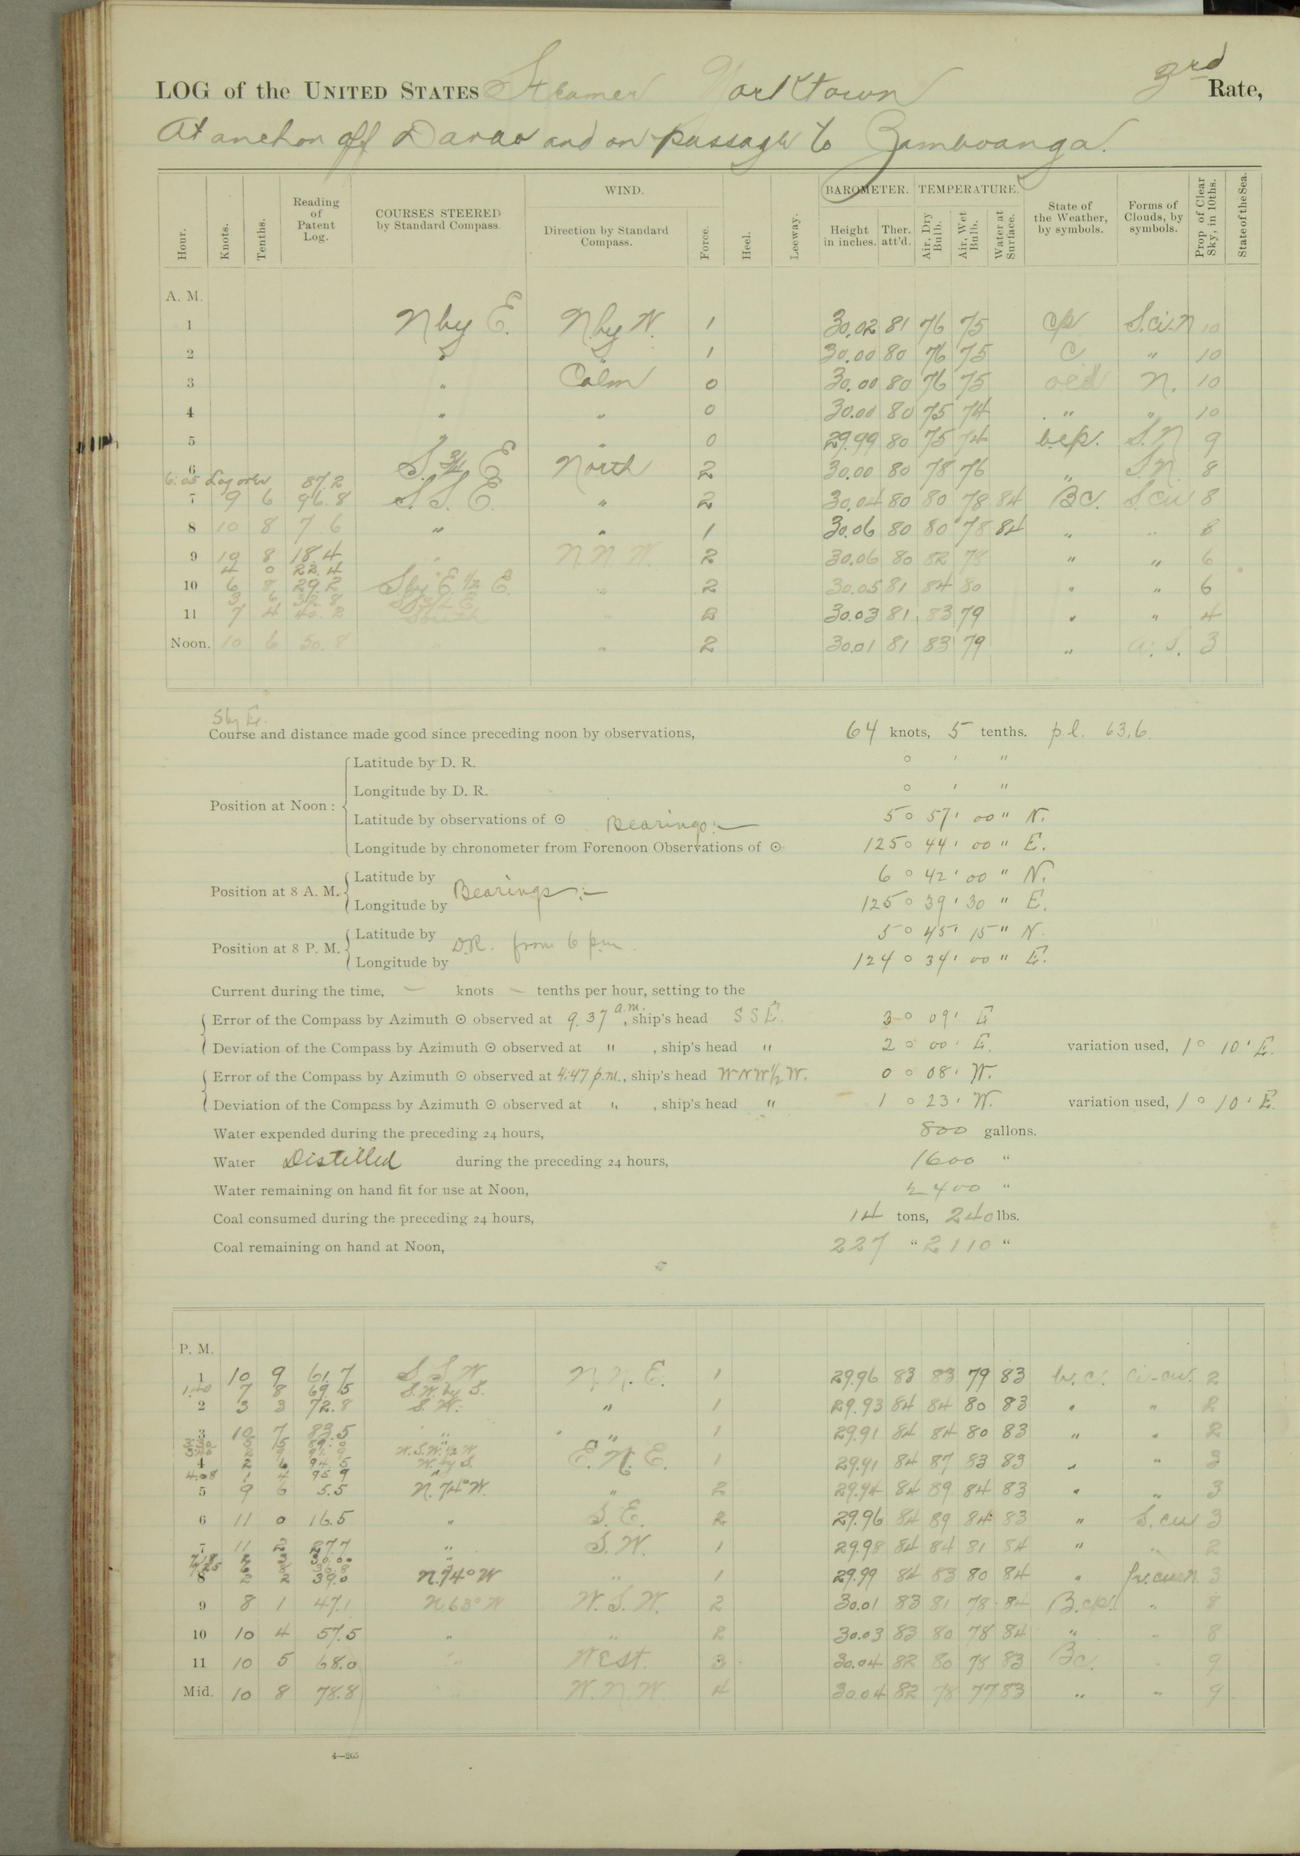 LOG of the UNITED STATES Steamer Yorktown 3rd Rate,
At anchor off Davao and on passage to Zamboanga.
Hour. Knots. Tenths. Reading of Patent Log. COURSES STEERED by Standard Compass. WIND. Direction by Standard Compass. Force. Heel. Leeway. BAROMETER. Height in inches. Ther. att'd. TEMPERATURE. Air, Dry Bulb. Air, Wet Bulb. Water at Surface. State of the Weather, by symbols. Forms of Clouds, by symbols. Prop. of Clear Sky, in 10ths. State of the Sea.
A. M.
1 N by E. N. by W. 1 30.02 81 76 75 cp S.ci-n 10
2 " " 1 30.00 80 76 75 c " 10
3 " Calm 0 30.00 80 76 75 N. 10
4 " " 0 30.00 80 75 74 " " 10
5 " " 0 29.99 80 75 74 b.c.p. S.N 9
6 S. 3/4 E North 2 30.00 80 78 76 " S.N. 8
6:05 Log over 87.2
7 9 6 96.8 S. S. E. " 2 30.04 80 80 78 84 Bc. S.cu 8
8 10 8 7 6 " " 1 30.06 80 80 78 84 " " 8
9 10 8 18 4 " N N W. 2 30.06 80 82 78 " " 6
4 0 22.4
10 6 8 29.2 S by E 1/2 E. " 2 30.05 81 84 80 " " 6
3 6 32 8
11 7 4 40.2 South " 2 30.03 81 83 79 " " 4
Noon. 10 6 50.8 " " 2 30.01 81 83 79 " 3
S by E.
Course and distance made good since preceding noon by observations, 64 knots, 5 tenths. p.l. 63.6
Position at Noon: Latitude by D. R. ° ' "
Longitude by D. R. ° ' "
Latitude by observations of ☉ Bearings:— 5° 57' 00" N.
Longitude by chronometer from Forenoon Observations of ☉ 125° 44' 00" E.
Position at 8 A. M. Latitude by Bearings:— 6° 42' 00" N.
Longitude by 125° 39' 30" E.
Position at 8 P. M. Latitude by D.R. from 6 p.m. 5° 45' 15" N.
Longitude by 124° 34' 00" E.
Current during the time, — knots — tenths per hour, setting to the
Error of the Compass by Azimuth ☉ observed at 9.37 a.m., ship's head S S E. 3° 09' E
Deviation of the Compass by Azimuth ☉ observed at " , ship's head " 2° 00' E. variation used, 1° 10' E.
Error of the Compass by Azimuth ☉ observed at 4:47 p.m., ship's head WNW 1/2 W. 0° 08' W.
Deviation of the Compass by Azimuth ☉ observed at " , ship's head " 1° 23' W. variation used, 1° 10' E.
Water expended during the preceding 24 hours, 800 gallons.
Water Distilled during the preceding 24 hours, 1600 "
Water remaining on hand fit for use at Noon, 2400 "
Coal consumed during the preceding 24 hours, 14 tons, 240 lbs.
Coal remaining on hand at Noon, 227 " 2110 "
P. M.
1 10 9 61.7 S. S. W. N. N. E. 1 29.96 83 83 79 83 b.c. ci-cu. 2
1.40 7 8 69.5 S.W. by S.
2 3 3 72.8 S.W. " 1 29.93 84 84 80 83 " " 2
3 10 7 83.5 " " 1 29.91 84 84 80 83 " " 2
W.S.W. 1/2 W
4 2 6 94.5 W. by S. E. N. E. 1 29.91 84 87 83 83 " " 3
4.08 1 4 95 9 "
5 9 6 5.5 N. 74° W. " 2 29.94 84 89 84 83 " " 3
6 11 0 16.5 " S. E. 2 29.96 84 89 84 83 " S.cu 3
7 11 2 27.7 " S. W. 1 29.98 84 84 81 84 " " 2
8 2 2 39.0 N. 74° W " 1 29.99 84 83 80 84 " 3
9 8 1 47.1 N. 63° W W. S. W. 2 30.01 83 81 78 84 B.cp. " 8
10 10 4 57.5 " " 2 30.03 83 80 78 84 " " 8
11 10 5 68.0 " West. 3 30.04 82 80 78 83 Bc. " 9
Mid. 10 8 78.8 W. N. W. 4 30.04 82 78 77 83 " " 9
4—265